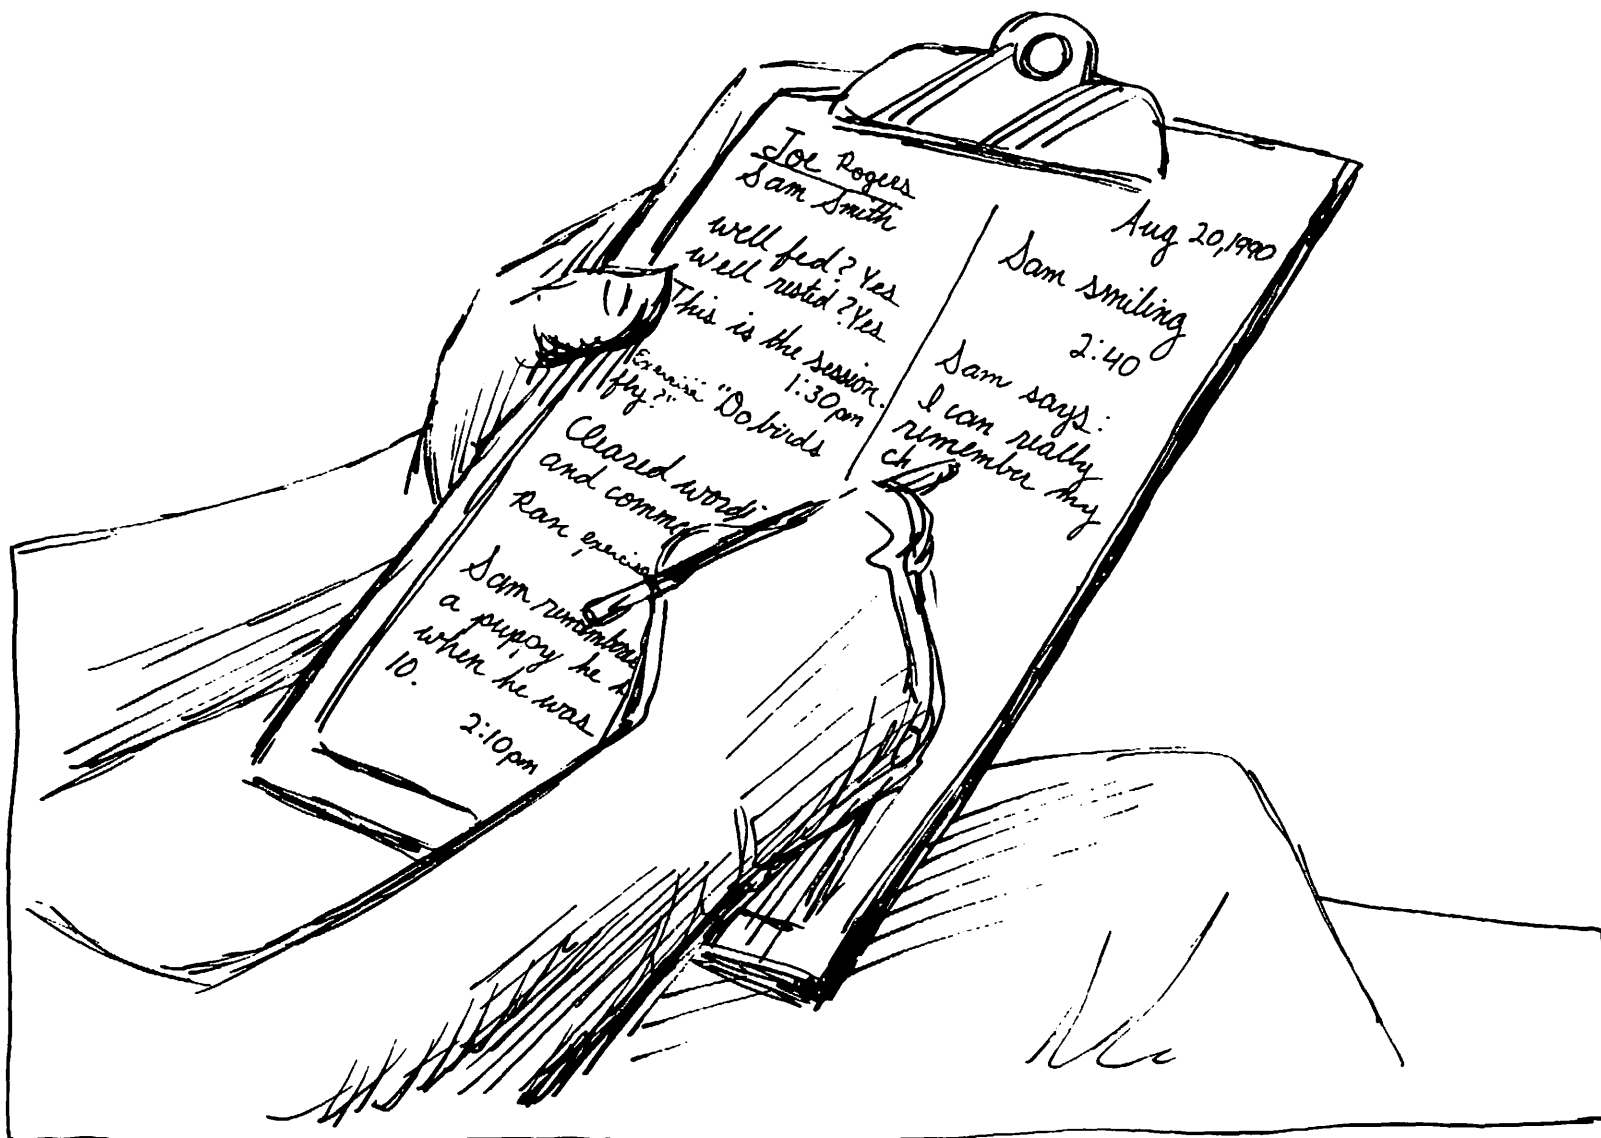 Joe Rogers
Sam Smith
well fed? Yes
well rested? Yes
This is the session.
1:30pm
Exercise "Do birds
fly?"
Cleared words
and comm
Ran exercise
Sam remembers
a puppy he h
when he was
10.
2:10pm
Aug 20, 1990
Sam smiling
2:40
Sam says:
I can really
remember my
ch